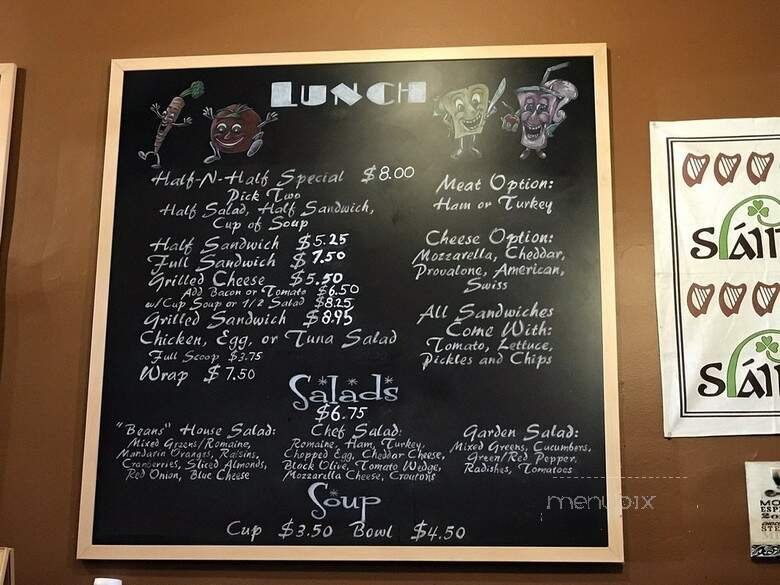 LUNCH
Half-N-Half Special $8.00
Pick Two
Half Salad, Half Sandwich,
Cup of Soup
Half Sandwich $5.25
Full Sandwich $7.50
Grilled Cheese $5.50
Add Bacon or Tomato $6.50
w/Cup Soup or 1/2 Salad $8.25
Grilled Sandwich $8.95
Chicken, Egg, or Tuna Salad
Full Scoop $3.75
Wrap $7.50
Meat Option:
Ham or Turkey
Cheese Option:
Mozzarella, Cheddar,
Provalone, American,
Swiss
All Sandwiches
Come With:
Tomato, Lettuce,
Pickles and Chips
Salads
$6.75
"Beans" House Salad:
Mixed Greens/Romaine,
Mandarin Oranges, Raisins,
Cranberries, Sliced Almonds,
Red Onion, Blue Cheese
Chef Salad:
Romaine, Ham, Turkey,
Chopped Egg, Cheddar Cheese,
Black Olive, Tomato Wedge,
Mozzarella Cheese, Croutons
Garden Salad:
Mixed Greens, Cucumbers,
Green/Red Pepper,
Radishes, Tomatoes
Soup
Cup $3.50 Bowl $4.50
menupix
Sláin
Sláin